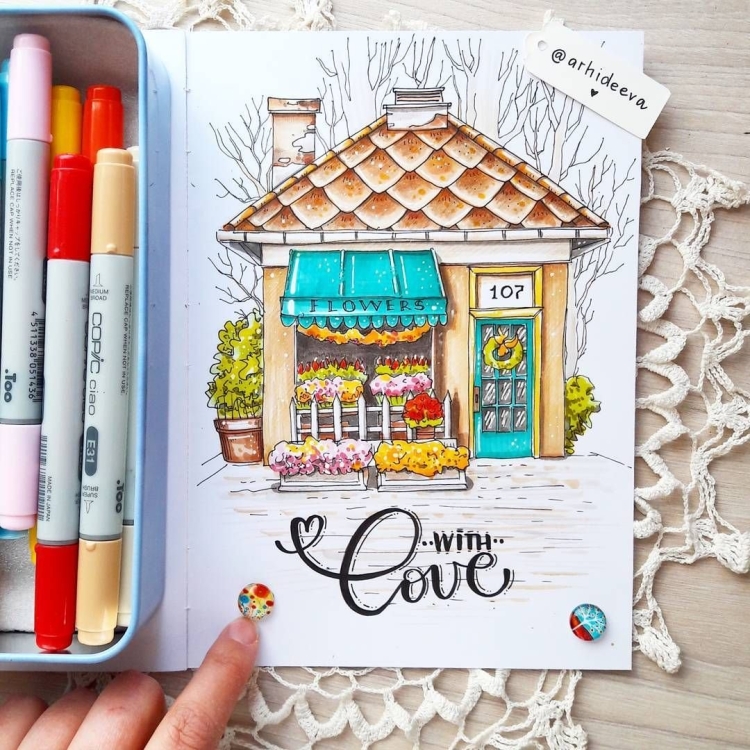 @arhideeva
FLOWERS
107
..WITH..
Love
REPLACE CAP WHEN NOT IN USE
4511338051436
.Too
MEDIUM
BROAD
COPIC ciao
E31
SUPER
BRUSH
.Too
MADE IN JAPAN
REPLACE CAP WHEN NOT IN USE